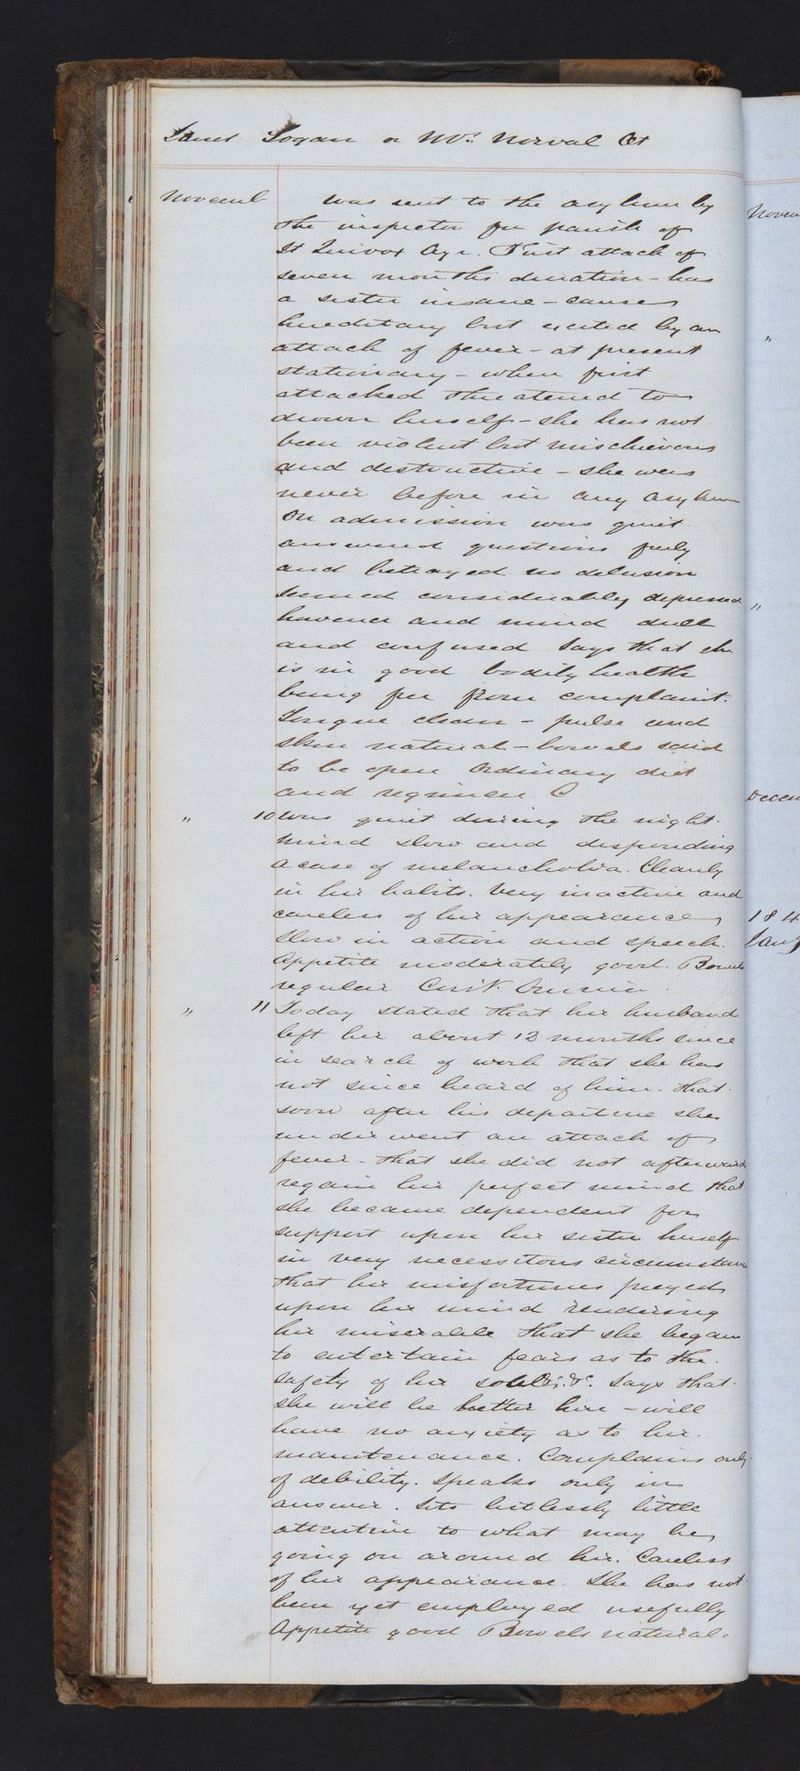 Janet Logan or Mrs. Norval Ct
Novem
Novemb was sent to the asylum by
the inspector for parish of
St Quivox Ayr. First attack of
seven months duration - has
a sister insane - causes
hereditary but excited by an
attack of fever - at present
stationary - when first
attacked threatened to
drown herself - she has not
been violent but mischievous
and destructive - she was
never before in any asylum
On admission was quiet
answered questions freely
and betrayed no delusion
seemed considerably depressed
however and mind dull
and confused says that she
is in good bodily health
being free from complaint.
Tongue clean - pulse and
skin natural - bowels said
to be open Ordinary diet
and regimen.
Decem
" 10 Was quiet during the night.
mind slow and desponding
a case of melancholia. Cleanly
in her habits. Very inactive and
careless of her appearance
184
slow in action and speech.
Jany
Appetite moderately good. Bowels
regular Cont. Omnia.
" 11 Today stated that her husband
left her about 12 months since
in search of work that she has
not since heard of him - that
soon after his departure she
underwent an attack of
fever - that she did not afterwards
regain her perfect mind that
she became dependent for
support upon her sister herself
in very necessitous circumstan
that her misfortunes preyed
upon her mind rendering
her miserable that she began
to entertain fears as to the
safety of her soul &c. &c. Says that
she will be better here - will
have no anxiety as to her
maintenance. Complains only
of debility. Speaks only in
answer. Sits listlessly little
attentive to what may be
going on around her. Careless
of her appearance. She has not
been yet employed usefully
Appetite good Bowels natural.